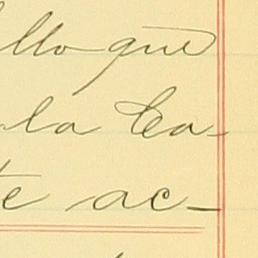 llo que
la Ca-
te ac-